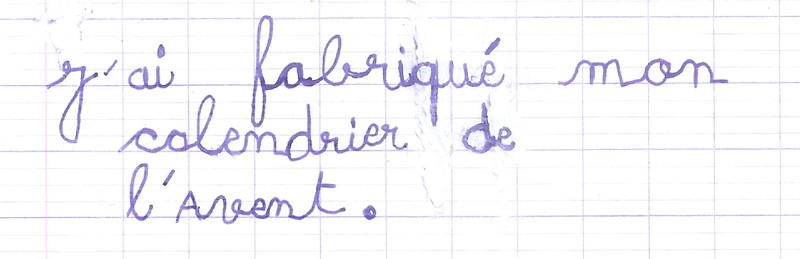 j'ai fabriqué mon
calendrier de
l'Avent.